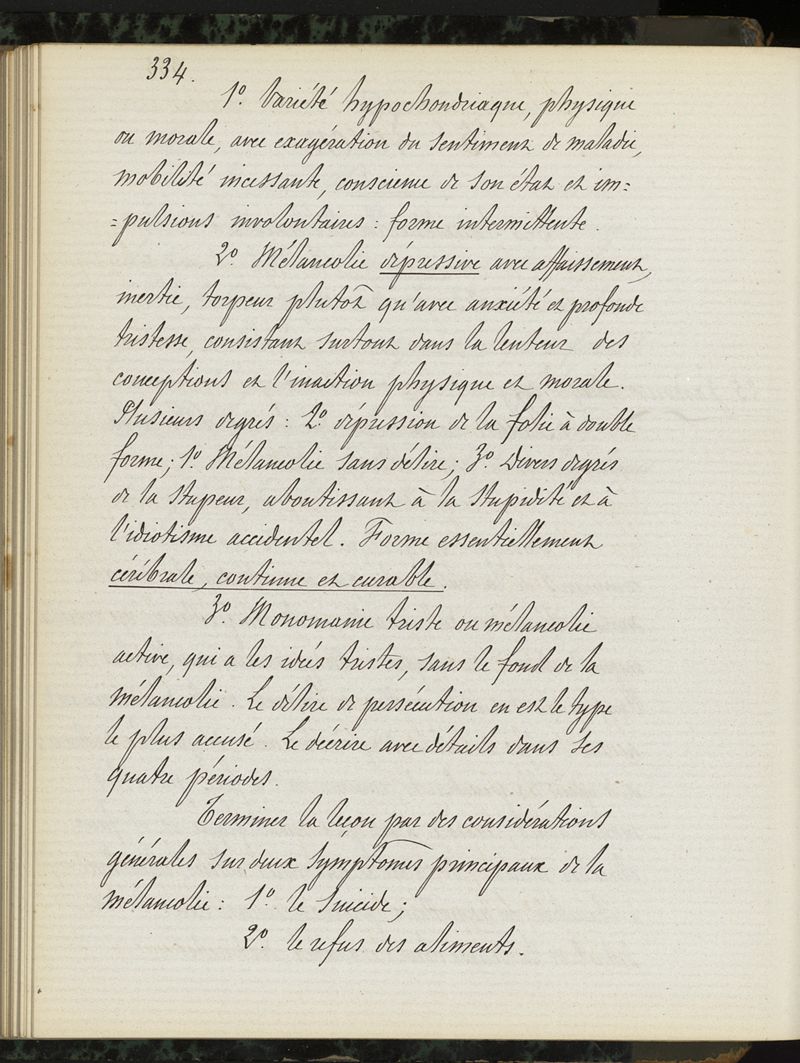 334.
1º. Variété hypochondriaque, physique
ou morale, avec exagération du sentiment de maladie,
mobilité incessante, conscience de son état et im=
=pulsions involontaires : forme intermittente.
2º. Mélancolie dépressive avec affaissement,
inertie, torpeur plutôt qu'avec anxiété et profonde
tristesse, consistant surtout dans la lenteur des
conceptions et l'inaction physique et morale.
Plusieurs degrés : 2º. dépression de la folie à double
forme ; 1º. Mélancolie sans délire ; 3º. Divers degrés
de la stupeur, aboutissant à la stupidité et à
l'idiotisme accidentel. Forme essentiellement
cérébrale, continue et curable.
3º. Monomanie triste ou mélancolie
active, qui a les idées tristes, sans le fond de la
mélancolie. Le délire de persécution en est le type
le plus accusé. Le décrire avec détails dans ses
quatre périodes.
Terminer la leçon par des considérations
générales sur deux symptômes principaux de la
mélancolie : 1º. le suicide ;
2º. le refus des aliments.